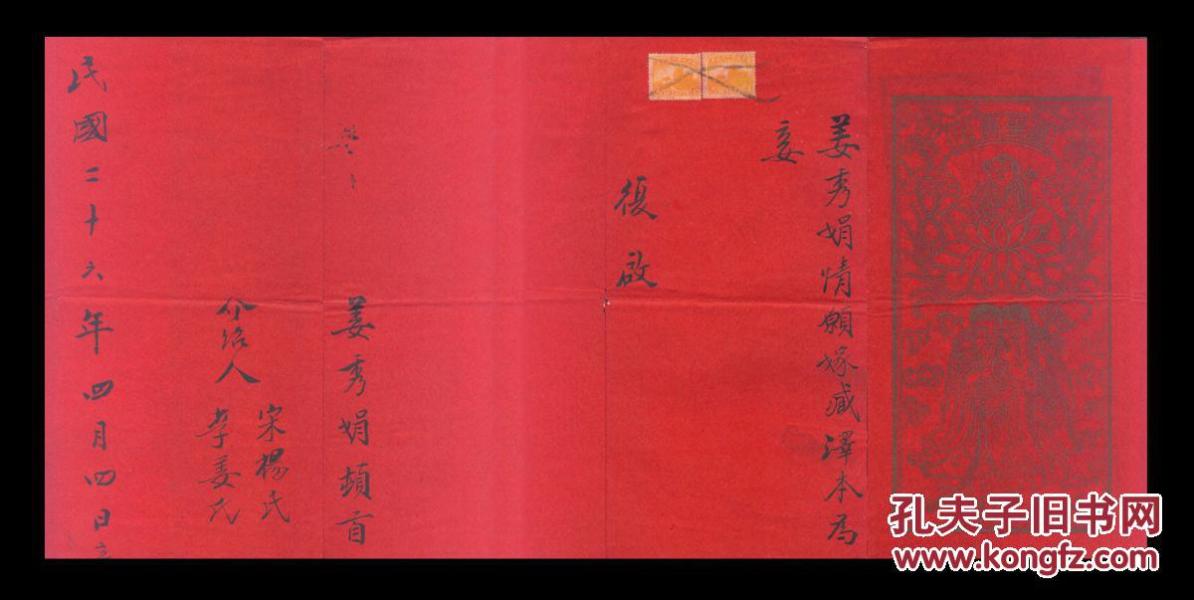 姜秀娟情願嫁臧澤本為
妾
復啟
姜秀娟頓首
介绍人
宋楊氏
李姜氏
民國二十六年四月四日立
孔夫子旧书网
www.kongfz.com